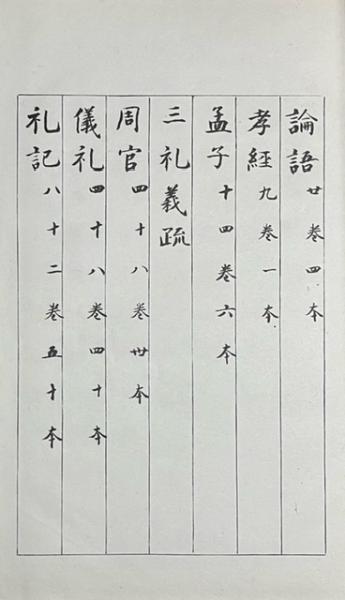 論語廿卷四本
孝經九卷一本
孟子十四卷六本
三礼義疏
周官四十八卷卌本
儀礼四十八卷四十本
礼記八十二卷五十本